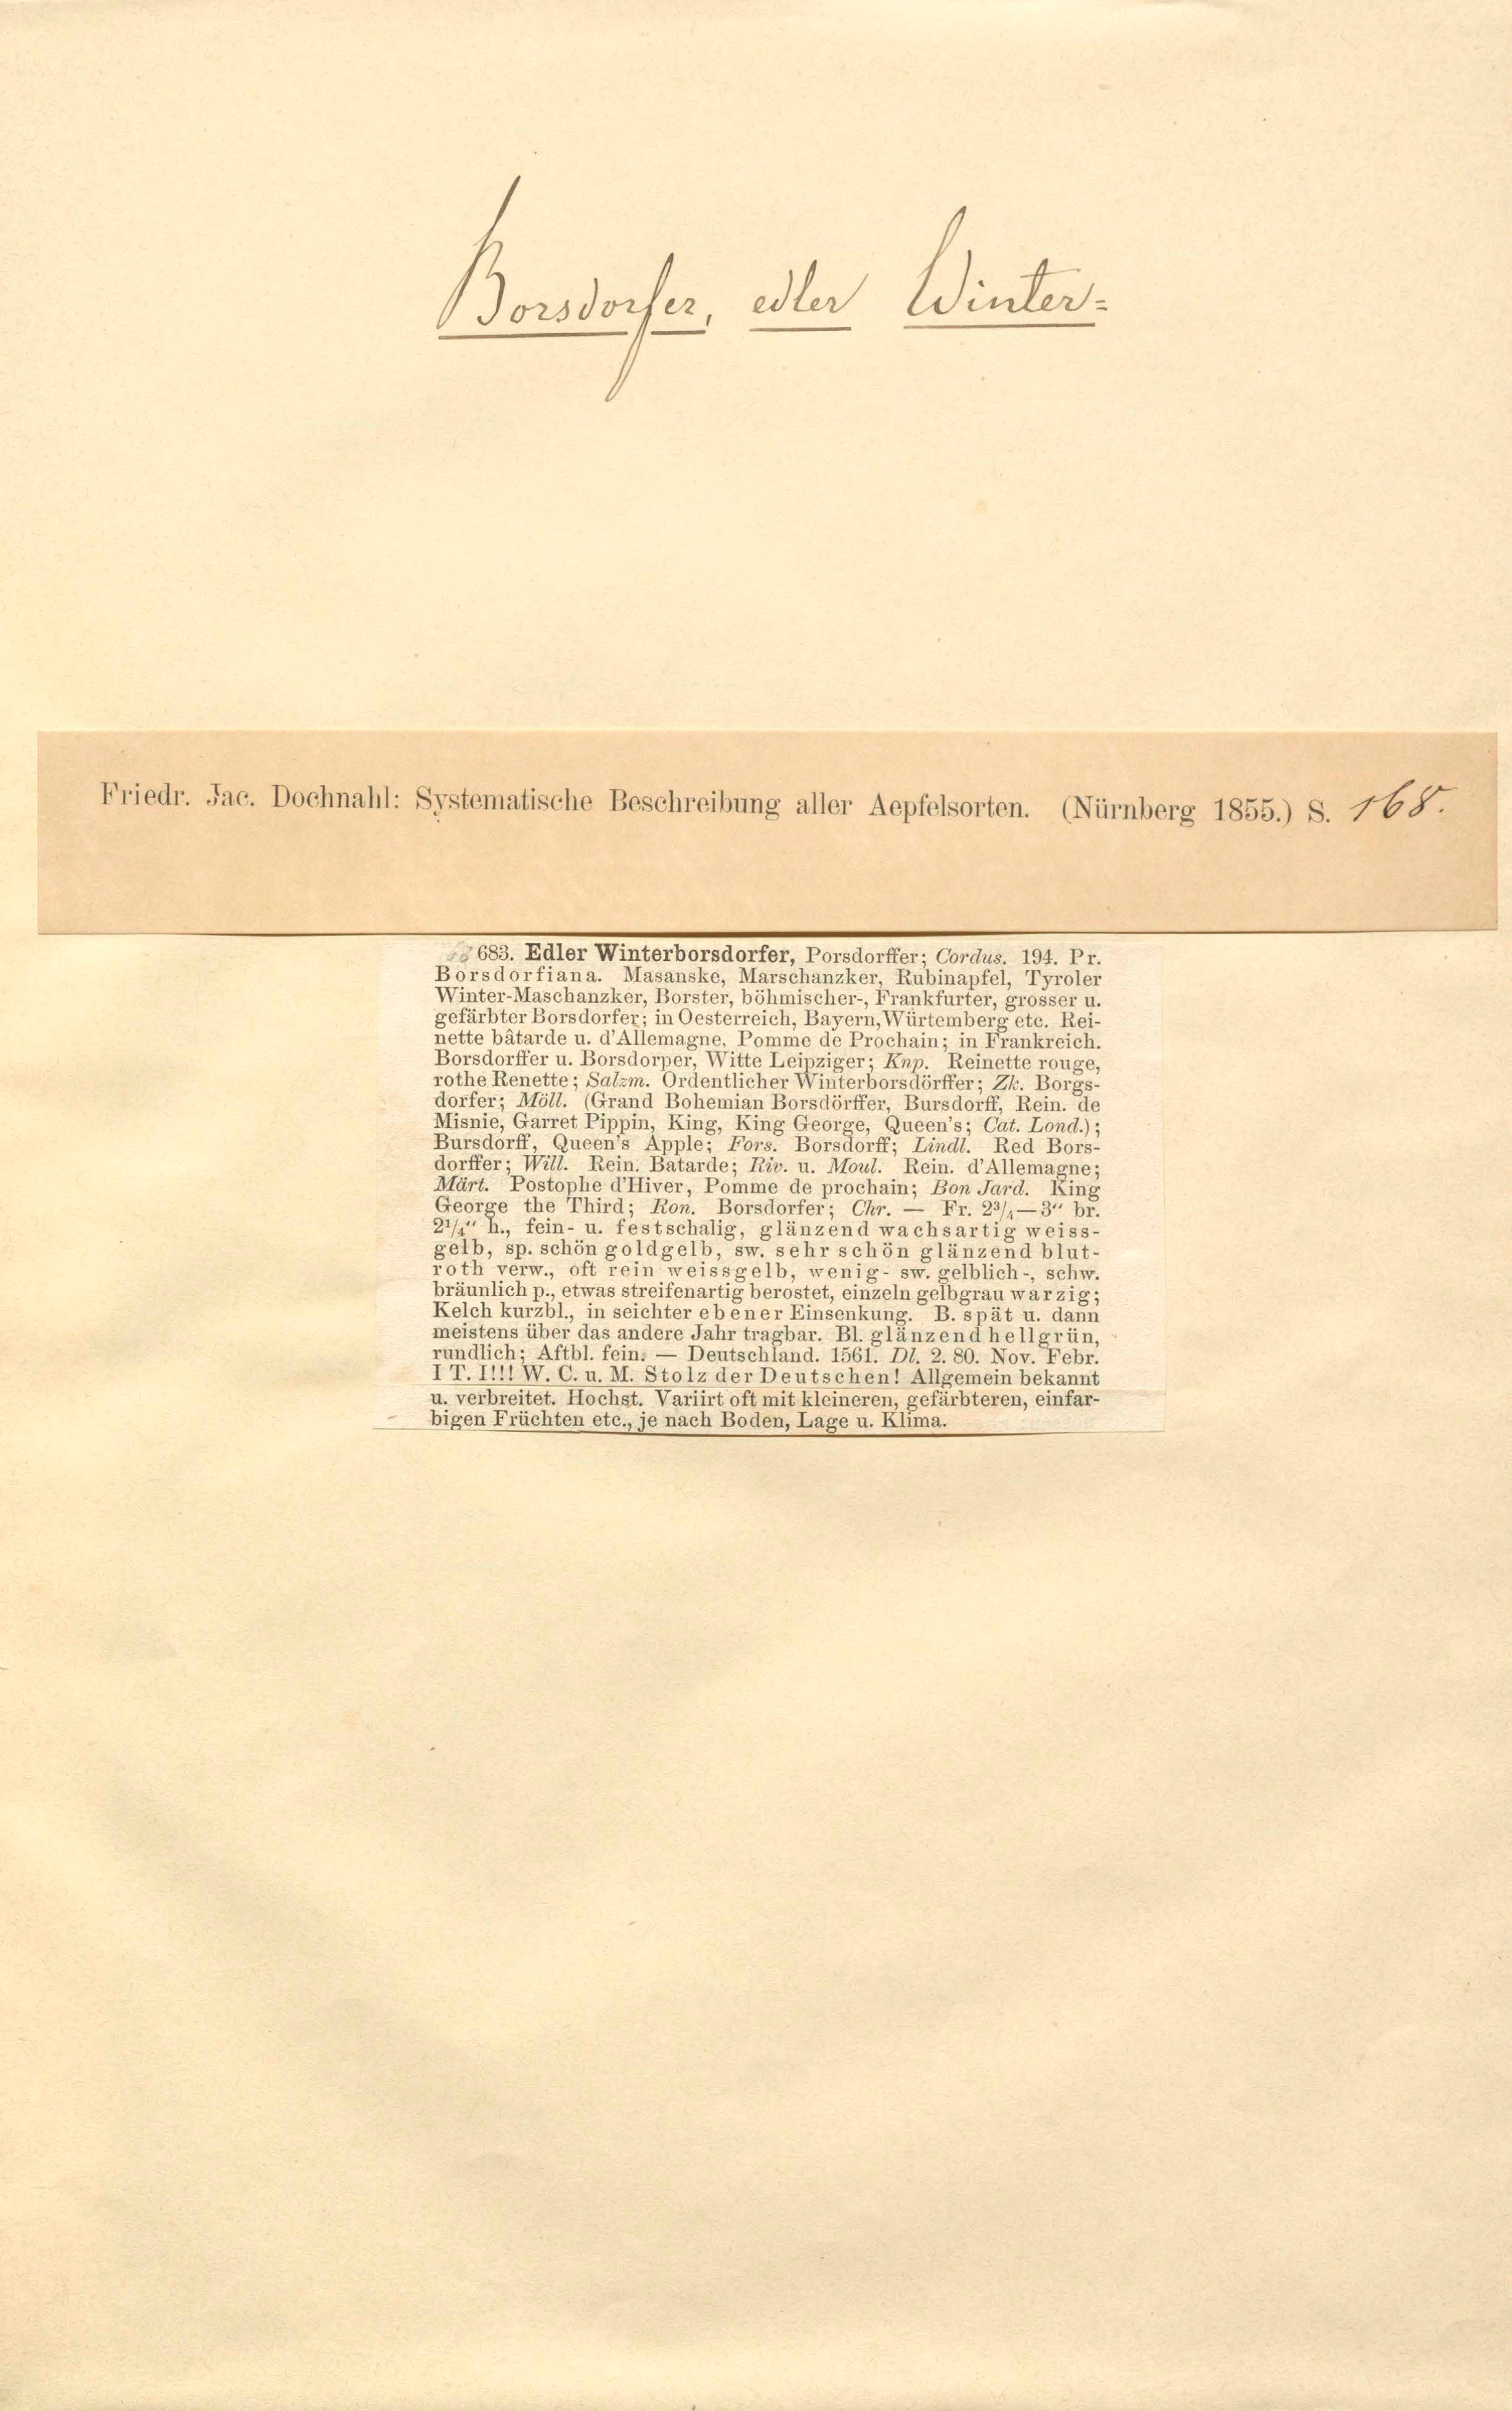 Borsdorfer, edler Winter=
Friedr. Jac. Dochnahl: Systematische Beschreibung aller Aepfelsorten. (Nürnberg 1855.) S. 168.
683. Edler Winterborsdorfer, Porsdorffer; Cordus. 194. Pr.
Borsdorfiana. Masanske, Marschanzker, Rubinapfel, Tyroler
Winter-Maschanzker, Borster, böhmischer-, Frankfurter, grosser u.
gefärbter Borsdorfer; in Oesterreich, Bayern, Würtemberg etc. Rei-
nette bâtarde u. d'Allemagne, Pomme de Prochain; in Frankreich.
Borsdorffer u. Borsdorper, Witte Leipziger; Knp. Reinette rouge,
rothe Renette; Salzm. Ordentlicher Winterborsdörffer; Zk. Borgs-
dorfer; Möll. (Grand Bohemian Borsdörffer, Bursdorff, Rein. de
Misnie, Garret Pippin, King, King George, Queen's; Cat. Lond.);
Bursdorff, Queen's Apple; Fors. Borsdorff; Lindl. Red Bors-
dorffer; Will. Rein. Batarde; Riv. u. Moul. Rein. d'Allemagne;
Märt. Postophe d'Hiver, Pomme de prochain; Bon Jard. King
George the Third; Ron. Borsdorfer; Chr. — Fr. 2¾—3“ br.
2¼“ h., fein- u. festschalig, glänzend wachsartig weiss-
gelb, sp. schön goldgelb, sw. sehr schön glänzend blut-
roth verw., oft rein weissgelb, wenig- sw. gelblich-, schw.
bräunlich p., etwas streifenartig berostet, einzeln gelbgrau warzig;
Kelch kurzbl., in seichter ebener Einsenkung. B. spät u. dann
meistens über das andere Jahr tragbar. Bl. glänzend hellgrün,
rundlich; Aftbl. fein. — Deutschland. 1561. Dl. 2. 80. Nov. Febr.
I T. I!!! W. C. u. M. Stolz der Deutschen! Allgemein bekannt
u. verbreitet. Hochst. Variirt oft mit kleineren, gefärbteren, einfar-
bigen Früchten etc., je nach Boden, Lage u. Klima.